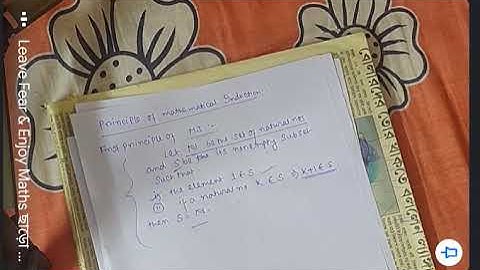 Principle of mathematical Induction.
First principle of MI :-
Let N be the set of natural nos
and S be the its nonempty subset
such that
i) the element 1 ∈ S
ii) if a natural no K ∈ S ⇒ K+1 ∈ S
then S = N.
Leave Fear & Enjoy Maths ছাড়ো ...